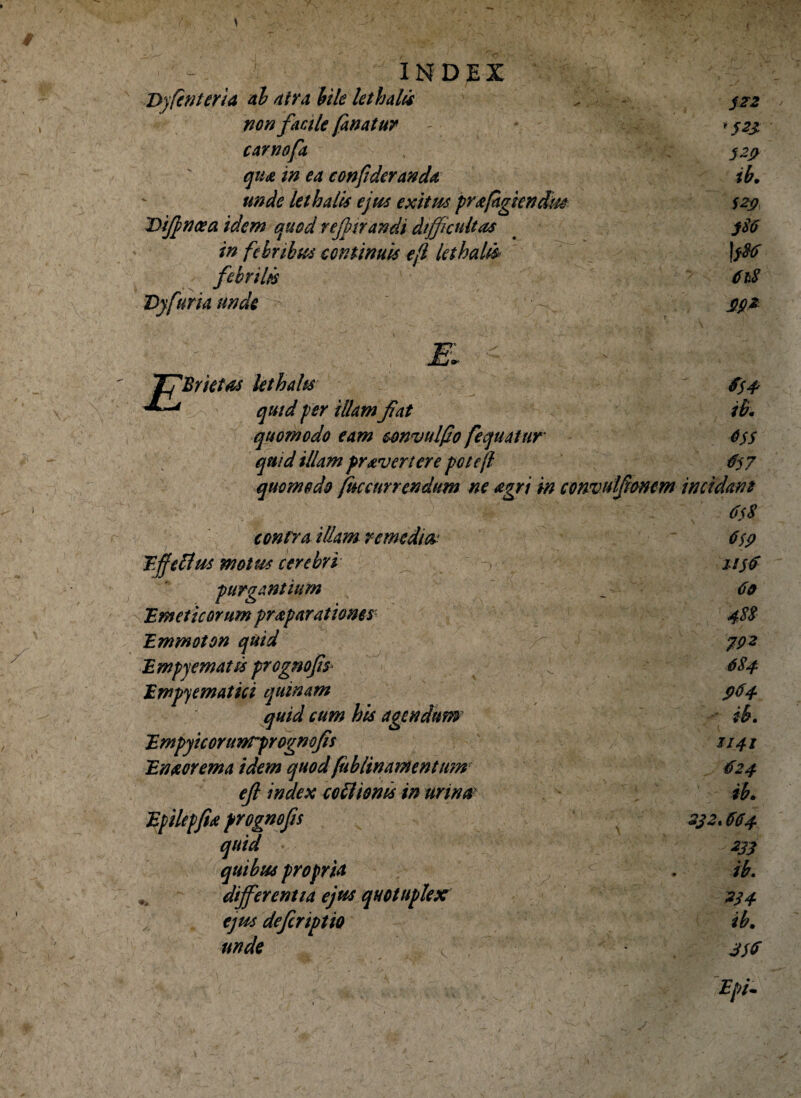 INDEX
Dyſenteria ab atra bile lethalis 522
non facile ſanatur 523
carnoſa 529
quæ in ea conſideranda ib.
unde lethalis ejus exitus præſagiendus 529
Diſpnœa idem quod reſpirandi difficultas 586
in febribus continuis eſt lethalis 586
febrilis 618
Dyſuria unde 992
E.
EBrietas lethalis 654
quid per illam fiat ib.
quomodo eam convulſio ſequatur 655
quid illam prævertere poteſt 657
quomodo ſuccurrendum ne ægri in convulſionem incidant
658
contra illam remedia 659
Effectus motus cerebri 1156
purgantium 60
Emeticorum præparationes 488
Emmoton quid 792
Empyematis prognoſis 684
Empyematici quinam 964
quid cum his agendum ib.
Empyicorum prognoſis 1141
Enæorema idem quod ſublinamentum 624
eſt index coctionis in urina ib.
Epilepſiæ prognoſis 232. 664
quid 233
quibus propria ib.
differentia ejus quotuplex 234
ejus deſcriptio ib.
unde 356
Epi-